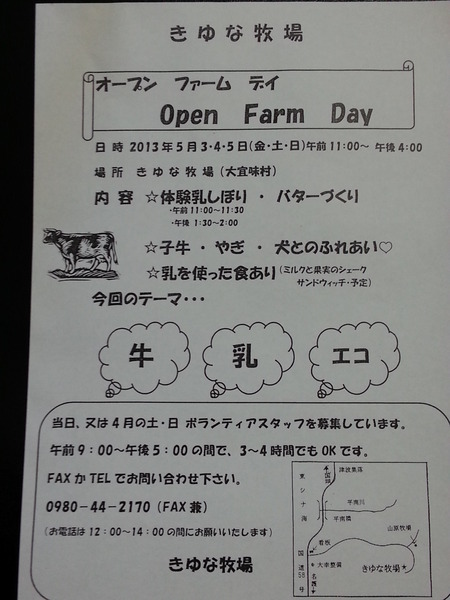 きゆな牧場
オープン ファーム デイ
Open Farm Day
日 時 2013年5月3・4・5日(金・土・日)午前11:00～ 午後4:00
場 所 きゆな牧場(大宜味村)
内 容 ☆体験乳しぼり ・ バターづくり
・午前 11:00～11:30
・午後 1:30～2:00
☆子牛 ・ やぎ ・ 犬とのふれあい♡
☆乳を使った食あり(ミルクと果実のシェーク
サンドウィッチ・予定)
今回のテーマ・・・
牛 乳 エコ
当日、又は4月の土・日 ボランティアスタッフを募集しています。
午前9：00～午後5：00の間で、3～4時間でもOKです。
FAXかTELでお問い合わせ下さい。
0980-44-2170(FAX兼)
(お電話は12：00～14：00の間にお願いいたします)
きゆな牧場
津波集落
国頭
東シナ海
平南川
平南橋
山原牧場
看板
国道58号
大宗整備
きゆな牧場★
名護